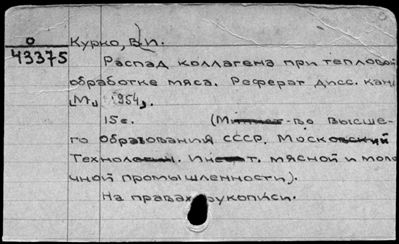 О
43375
Курко, В.И.
Распад коллагена при теплово
обработке мяса. Реферат дисс. канд
М., 1954,
15 с. (Минист-во высше-
го образования СССР. Московский
Технолог. Инст-т. мясной и моло
чной промышленности).
На правах рукописи.